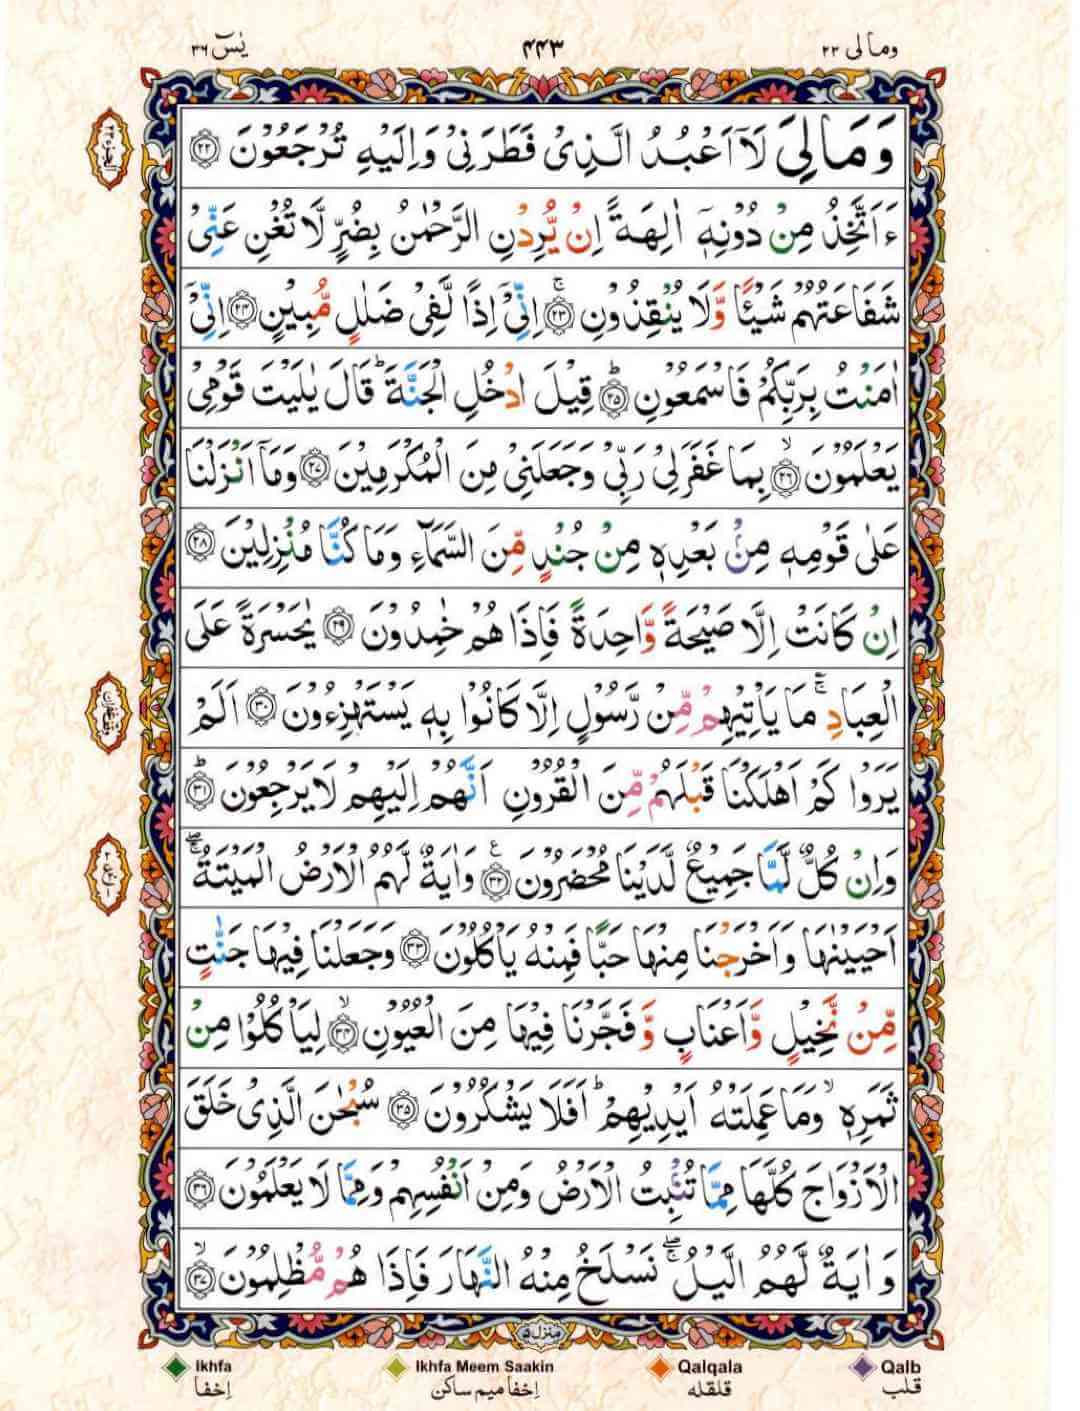 وما لی ۲۳ ۴۴۳ یٰسٓ ۳۶
وَمَا لِىَ لَآ اَعۡبُدُ الَّذِىۡ فَطَرَنِىۡ وَاِلَيۡهِ تُرۡجَعُوۡنَ ﴿۲۲﴾
ءَاَتَّخِذُ مِنۡ دُوۡنِهٖۤ اٰلِهَةً اِنۡ يُّرِدۡنِ الرَّحۡمٰنُ بِضُرٍّ لَّا تُغۡنِ عَنِّىۡ
شَفَاعَتُهُمۡ شَيۡـًٔا وَّلَا يُنۡقِذُوۡنِ‌ۚ ﴿۲۳﴾ اِنِّىۡۤ اِذًا لَّفِىۡ ضَلٰلٍ مُّبِيۡنٍ ﴿۲۴﴾ اِنِّىۡۤ
اٰمَنۡتُ بِرَبِّكُمۡ فَاسۡمَعُوۡنِؕ ﴿۲۵﴾ قِيۡلَ ادۡخُلِ الۡجَنَّةَ ؕ قَالَ يٰلَيۡتَ قَوۡمِىۡ
يَعۡلَمُوۡنَۙ ﴿۲۶﴾ بِمَا غَفَرَلِىۡ رَبِّىۡ وَجَعَلَنِىۡ مِنَ الۡمُكۡرَمِيۡنَ ﴿۲۷﴾ وَمَاۤ اَنۡزَلۡنَا
عَلٰى قَوۡمِهٖ مِنۡۢ بَعۡدِهٖ مِنۡ جُنۡدٍ مِّنَ السَّمَآءِ وَمَا كُنَّا مُنۡزِلِيۡنَ ﴿۲۸﴾
اِنۡ كَانَتۡ اِلَّا صَيۡحَةً وَّاحِدَةً فَاِذَا هُمۡ خٰمِدُوۡنَ ﴿۲۹﴾ يٰحَسۡرَةً عَلَى
الۡعِبَادِ ۚ مَا يَاۡتِيۡهِمۡ مِّنۡ رَّسُوۡلٍ اِلَّا كَانُوۡا بِهٖ يَسۡتَهۡزِءُوۡنَ ﴿۳۰﴾ اَلَمۡ
يَرَوۡا كَمۡ اَهۡلَـكۡنَا قَبۡلَهُمۡ مِّنَ الۡقُرُوۡنِ اَنَّهُمۡ اِلَيۡهِمۡ لَا يَرۡجِعُوۡنَؕ ﴿۳۱﴾
وَاِنۡ كُلٌّ لَّمَّا جَمِيۡعٌ لَّدَيۡنَا مُحۡضَرُوۡنَ ﴿۳۲﴾ وَاٰيَةٌ لَّهُمُ الۡاَرۡضُ الۡمَيۡتَةُ ۖۚ
اَحۡيَيۡنٰهَا وَاَخۡرَجۡنَا مِنۡهَا حَبًّا فَمِنۡهُ يَاۡكُلُوۡنَ ﴿۳۳﴾ وَجَعَلۡنَا فِيۡهَا جَنّٰتٍ
مِّنۡ نَّخِيۡلٍ وَّاَعۡنَابٍ وَّفَجَّرۡنَا فِيۡهَا مِنَ الۡعُيُوۡنِۙ ﴿۳۴﴾ لِيَاۡكُلُوۡا مِنۡ
ثَمَرِهٖ ۙ وَمَا عَمِلَتۡهُ اَيۡدِيۡهِمۡ‌ؕ اَفَلَا يَشۡكُرُوۡنَ ﴿۳۵﴾ سُبۡحٰنَ الَّذِىۡ خَلَقَ
الۡاَزۡوَاجَ كُلَّهَا مِمَّا تُنۡۢبِتُ الۡاَرۡضُ وَمِنۡ اَنۡفُسِهِمۡ وَمِمَّا لَا يَعۡلَمُوۡنَ ﴿۳۶﴾
وَاٰيَةٌ لَّهُمُ الَّيۡلُ ۖۚ نَسۡلَخُ مِنۡهُ النَّهَارَ فَاِذَا هُمۡ مُّظۡلِمُوۡنَۙ ﴿۳۷﴾
منزل ۵
Ikhfa Ikhfa Meem Saakin Qalqala Qalb
اِخفا اِخفا میم ساکن قلقله قلب